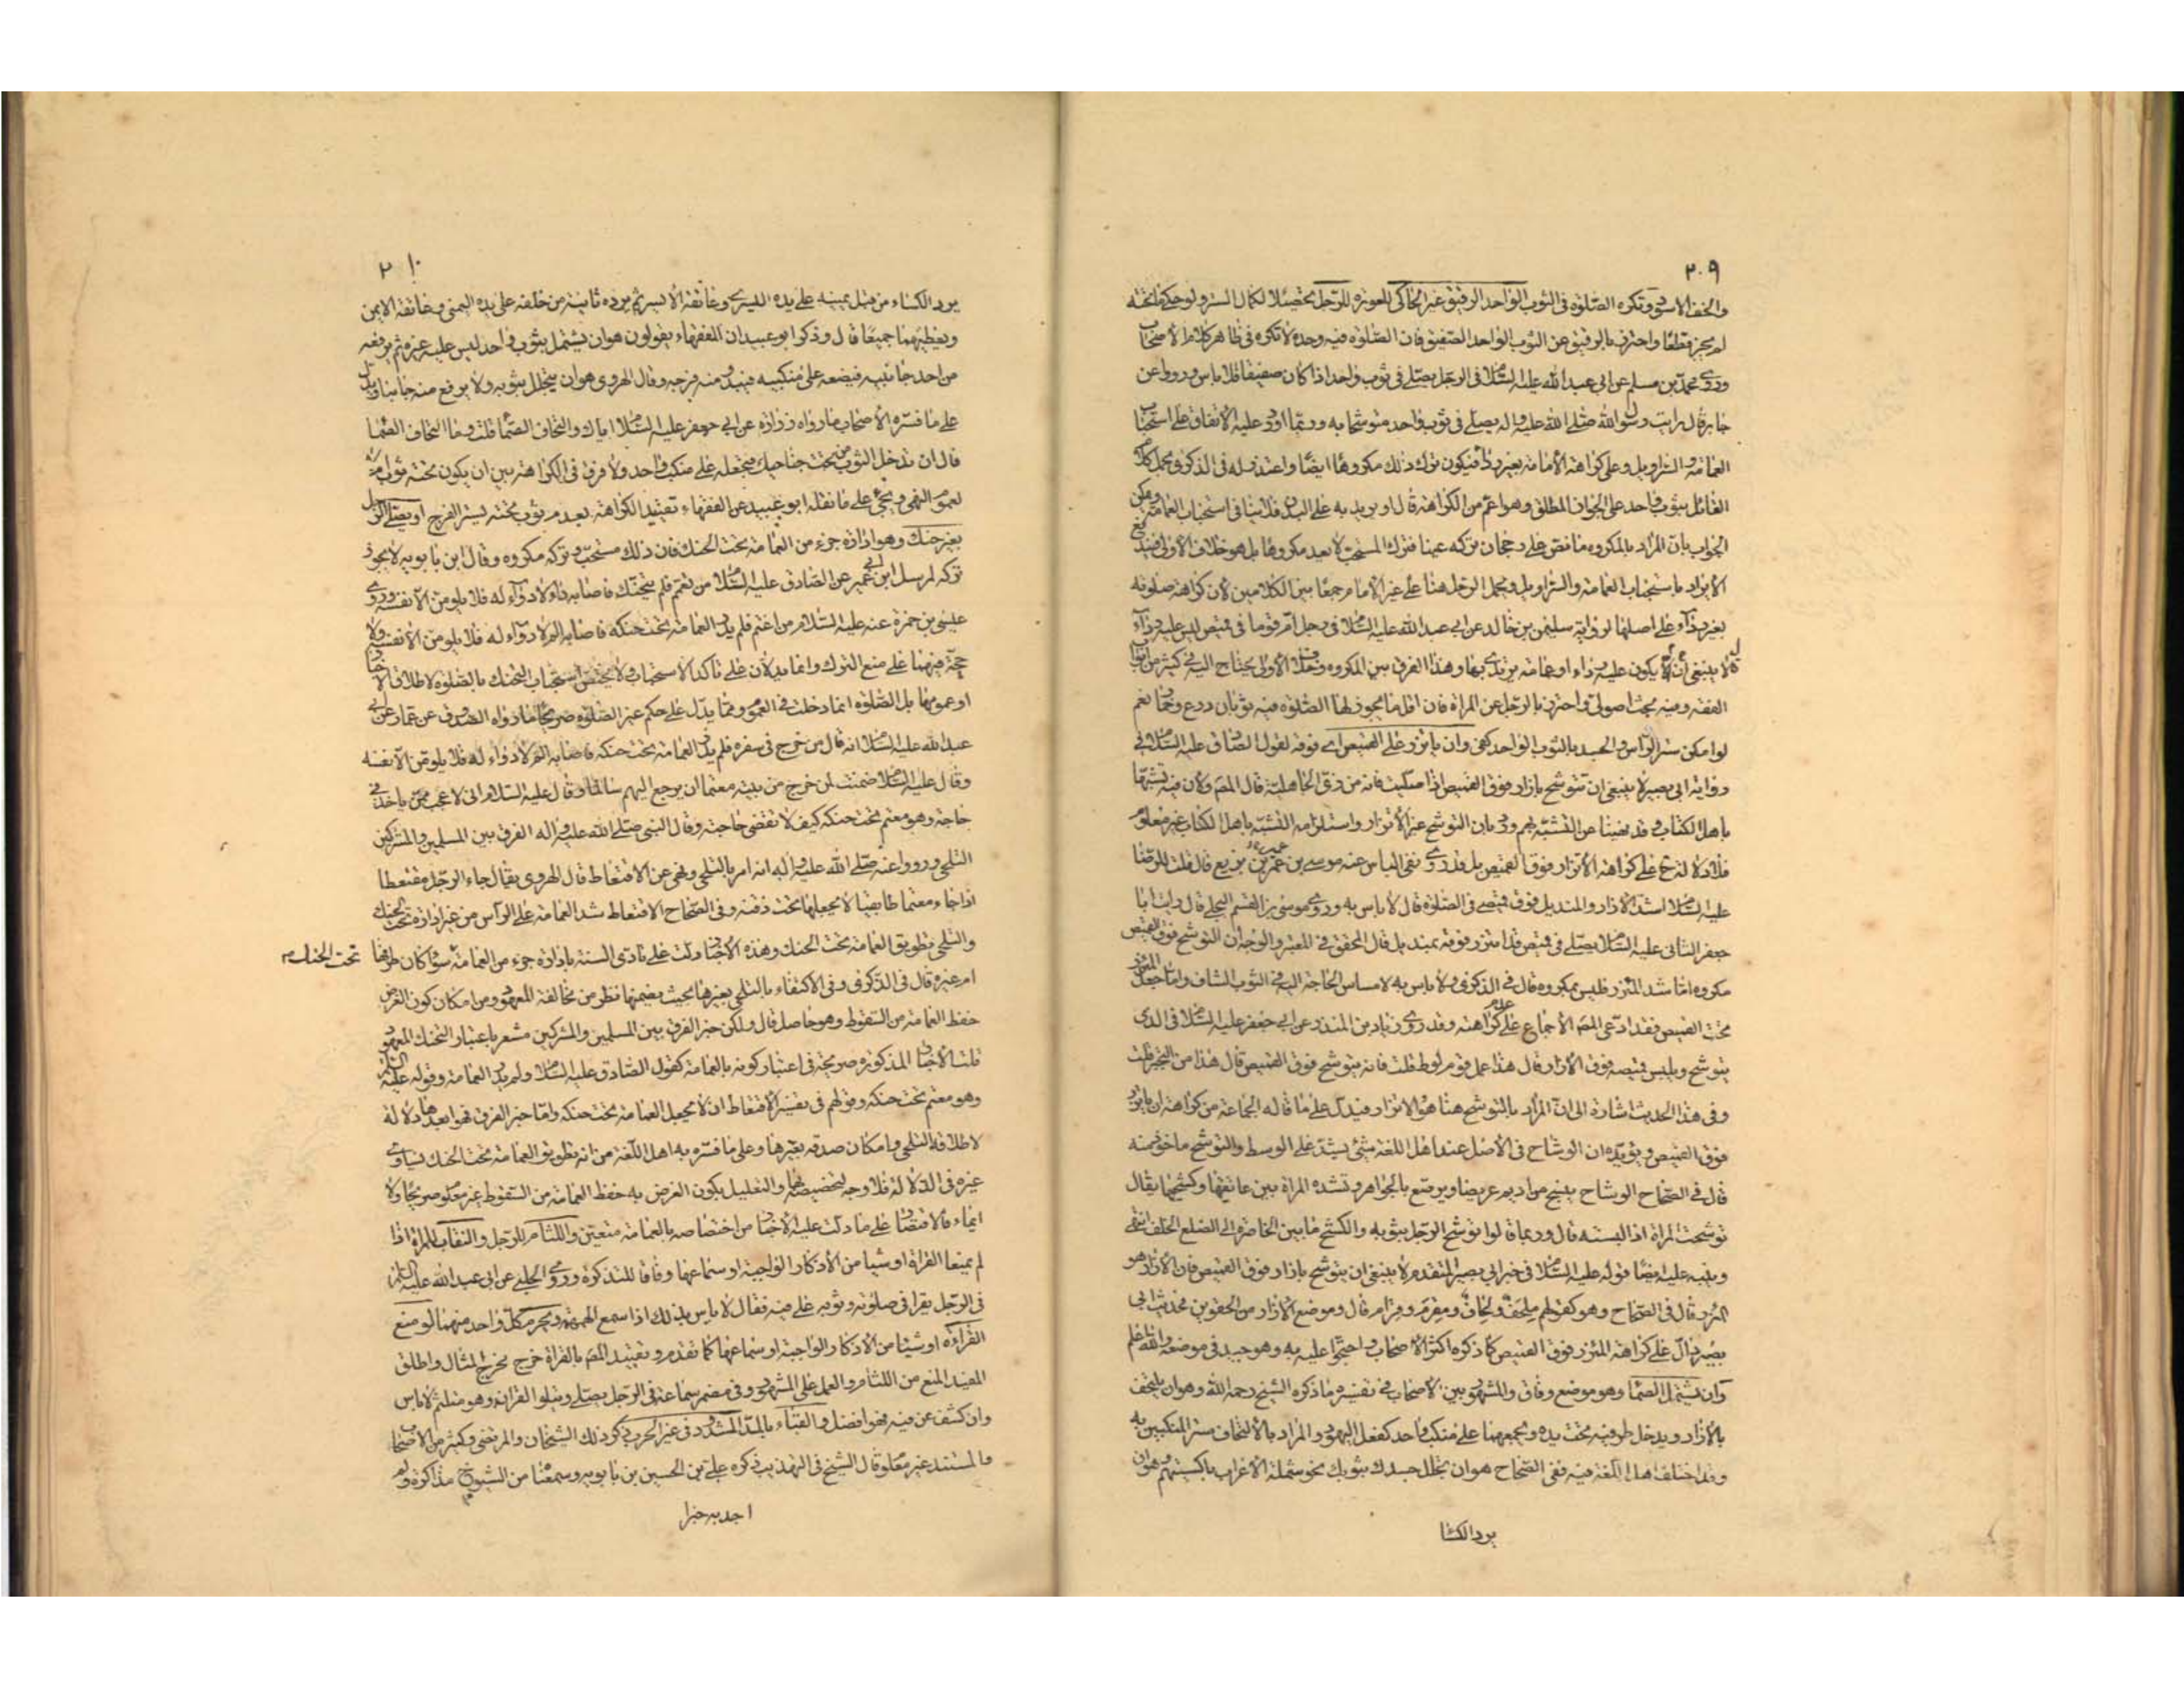 ٢٠٩
والخف الاسود وتكره الصلوة فى الثوب الواحد الرقيق غير الحاكى للعورة للرجل تحصيلا لكمال الستر ولو حكى ما تحته
لم يجز قطعا واحترز بالرقيق عن الثوب الواحد الصفيق فان الصلوة فيه وحده لا تكره فى ظاهر كلام الاصحاب
وروى محمد بن مسلم عن ابى عبد الله عليه السلام فى الرجل يصلى فى ثوب واحد اذا كان صفيقا فلا باس وروا عن
جابر قال رايت رسول الله صلى الله عليه واله يصلى فى ثوب واحد متوشحا به وربما اورد عليه الاتفاق على استحباب
العمامة والسراويل وعلى كراهة الامامة بغير رداء فيكون ترك ذلك مكروها ايضا واعتذر له فى الذكرى بحمل كلام
القائل بثوب واحد على الجواز المطلق وهو اعم من الكراهة قال او يريد به على البدن فلا ينافى استحباب العمامة ويمكن
الجواب بان المراد بالمكروه ما نص على رجحان تركه عينا فترك المستحب لا يعد مكروها بل هو خلاف الاولى فيندفع
الايراد باستحباب العمامة والسراويل ويحمل الرجل هنا على غير الامام جمعا بين الكلامين لان كراهة صلوته
بغير رداء على اصلها لرواية سليمن بن خالد عن ابى عبد الله عليه السلام فى رجل ام قوما فى قميص ليس عليه رداء
قال لا ينبغى الا ان يكون عليه رداء او عمامة يرتدى بها وهذا الفرق بين المكروه وخلاف الاولى يحتاج اليه فى كثير من ابواب
الفقه وفيه بحث اصولى واحترز بالرجل عن المراة فان اقل ما يجوز لها الصلوة فيه ثوبان درع وخمار نعم
لو امكن ستر الراس والجسد بالثوب الواحد كفى وان ياتزر على القميص اى فوقه لقول الصادق عليه السلام فى
رواية ابى بصير لا ينبغى ان تتوشح بازار فوق القميص اذا صليت فانه من زى الجاهلية قال المص ولان فيه تشبها
باهل الكتاب وقد نهينا عن التشبه بهم ورد بان التوشح غير الاتزار واستلزامه التشبه باهل الكتاب غير معلوم
فلا دلالة ح على كراهة الاتزار فوق القميص بل قد روى نفى الباس عنه موسى بن عمر بن بزيع قال قلت للرضا
عليه السلام اشد الازار والمنديل فوق قميصى فى الصلوة قال لا باس به وروى موسى بن القسم البجلى قال رايت ابا
جعفر الثانى عليه السلام يصلى فى قميص قد اتزر فوقه بمنديل قال المحقق فى المعتبر والوجه ان التوشح فوق القميص
مكروه اما شد المئزر فليس بمكروه وقال فى الذكرى ولا باس به لامساس الحاجة اليه فى الثوب الشاف واما جعل المئزر
تحت القميص فقد ادعى المص الاجماع على عدم كراهته وقد روى زياد بن المنذر عن ابى جعفر عليه السلام فى الذى
يتوشح ويلبس قميصه فوق الازار قال هذا عمل قوم لوط قلت فانه يتوشح فوق القميص قال هذا من التجبر قلت
وفى هذا الحديث اشارة الى ان المراد بالتوشح هنا هو الاتزار فيدل على ما قاله الجماعة من كراهة ان ياتزر
فوق القميص ويؤيده ان الوشاح فى الاصل عند اهل اللغة شئ يشد على الوسط والتوشح ماخوذ منه
قال فى الصحاح الوشاح ينسج من اديم عريضا ويرصع بالجواهر وتشده المراة بين عاتقها وكشحها يقال
توشحت المراة اذا لبسته قال وربما قالوا توشح الرجل بثوبه والكشح ما بين الخاصرة الى الضلع الخلف انتهى
وينبه عليه ايضا قوله عليه السلام فى خبر ابى بصير المتقدم لا ينبغى ان يتوشح بازار فوق القميص فان الازار هو
المئزر قال فى الصحاح وهو كقولهم ملحف ولحاف ومقرم وقرام قال وموضع الازار من الحقوين فحديث ابى
بصير دال على كراهة المئزر فوق القميص كما ذكره اكثر الاصحاب واحتجوا عليه به وهو جيد فى موضعه والله اعلم
وان يشتمل الصما وهو موضع وفاق والمشهور بين الاصحاب فى تفسيره ما ذكره الشيخ رحمه الله وهو ان يلتحف
بالازار ويدخل طرفيه تحت يده ويجمعهما على منكب واحد كفعل اليهود والمراد بالالتحاف ستر المنكبين به
وقد اختلف اهل اللغة فيه ففى الصحاح هو ان تجلل جسدك بثوبك نحو شملة الاعراب باكسيتهم وهو ان
يرد الكسا
٢١٠
يرد الكساء من قبل يمينه على يده اليسرى وعاتقه الايسر ثم يرده ثانية من خلفه على يده اليمنى وعاتقه الايمن
ويغطيهما جميعا قال وذكر ابو عبيد ان الفقهاء يقولون هو ان يشتمل بثوب واحد ليس عليه غيره ثم يرفعه
من احد جانبيه فيضعه على منكبيه فيبدو منه فرجه وقال الهروى هو ان يتجلل بثوبه ولا يرفع منه جانبا ويدل
على ما فسره الاصحاب ما رواه زرارة عن ابى جعفر عليه السلام اياك والتحاف الصما قلت وما التحاف الصما
قال ان تدخل الثوب من تحت جناحيك فتجعله على منكب واحد ولا فرق فى الكراهة بين ان يكون تحته ثوب ام لا
لعموم النهى ويجئ على ما نقله ابو عبيد عن الفقهاء تقييد الكراهة بعدم ثوب تحته يستر الفرج او يصلى الرجل
بغير حنك وهو ادارة جزء من العمامة تحت الحنك فان ذلك مستحب وتركه مكروه وقال ابن بابويه لا يجوز
تركه لمرسل ابن ابى عمير عن الصادق عليه السلام من تعمم فلم يتحنك فاصابه داء لا دواء له فلا يلومن الا نفسه وروى
عيسى بن حمزة عنه عليه السلام من اعتم فلم يدر العمامة تحت حنكه فاصابه الم لا دواء له فلا يلومن الا نفسه ولا
حجة فيهما على منع الترك وانما يدلان على تاكد الاستحباب ولا يختص استحباب التحنك بالصلوة لاطلاق الاخبار
او عمومها بل الصلوة انما دخلت فى العموم ومما يدل على حكم غير الصلوة صريحا ما رواه الصدوق عن عمار عن ابى
عبد الله عليه السلام انه قال من خرج فى سفره فلم يدر العمامة تحت حنكه فاصابه الم لا دواء له فلا يلومن الا نفسه
وقال عليه السلام ضمنت لمن خرج من بيته معتما ان يرجع اليهم سالما وقال عليه السلام انى لاعجب ممن ياخذ فى
حاجة وهو معتم تحت حنكه كيف لا تقضى حاجته وقال النبى صلى الله عليه واله الفرق بين المسلمين والمشركين
التلحى ورووا عنه صلى الله عليه واله انه امر بالتلحى ونهى عن الاقتعاط قال الهروى يقال جاء الرجل مقتعطا
اذا جاء معتما طابقيا لا يجعلها تحت ذقنه وفى الصحاح الاقتعاط شد العمامة على الراس من غير ادارة تحت الحنك
والتلحى تطويق العمامة تحت الحنك وهذه الاخبار دلت على تادى السنة بادارة جزء من العمامة سواء كان طرفها
تحت الحنك
ام غيره قال فى الذكرى وفى الاكتفاء بالتلحى بغيرها بحيث يضمها نظر من مخالفة المعهود ومن امكان كون الغرض
حفظ العمامة من السقوط وهو حاصل قال ولكن خبر الفرق بين المسلمين والمشركين مشعر باعتبار التحنك المعهود
قلت الاخبار المذكورة صريحة فى اعتبار كونه بالعمامة كقول الصادق عليه السلام ولم يدر العمامة وقوله عليه السلام
وهو معتم تحت حنكه وقولهم فى تفسير الاقتعاط ان لا يجعل العمامة تحت حنكه واما خبر الفرق فهو ابعدها دلالة
لاطلاقه التلحى وامكان صدقه بغيرها وعلى ما فسره به اهل اللغة من انه تطويق العمامة تحت الحنك يساوى
غيره فى الدلالة فلا وجه لتخصيصه والتعليل بكون الغرض به حفظ العمامة من السقوط غير معلوم صريحا ولا
ايماء فالاقتصار على ما دلت عليه الاخبار من اختصاصه بالعمامة متعين واللثام للرجل والنقاب للمراة اذا
لم يمنعا القراة او شيا من الاذكار الواجبة او سماعها وفاقا للتذكرة وروى الحلبى عن ابى عبد الله عليه السلام
فى الرجل يقرا فى صلوته وثوبه على فيه فقال لا باس بذلك اذا سمع الهمهمة ويحرم كل واحد منهما لو منع
القراءة او شيئا من الاذكار الواجبة او سماعها كما تقدم وتقييد المص بالقراة خرج مخرج المثال واطلق
المفيد المنع من اللثام والعمل على المشهور وفى مضمر سماعة فى الرجل يصلى ويتلو القران وهو متلثم لا باس
وان كشف عن فيه فهو افضل والقباء المشدود فى غير الحرب ذكر ذلك الشيخان والمرتضى وكثير من الاصحاب
والمستند غير معلوم قال الشيخ فى التهذيب ذكره على بن الحسين بن بابويه وسمعنا من الشيوخ مذاكرة ولم
اجد به خبرا